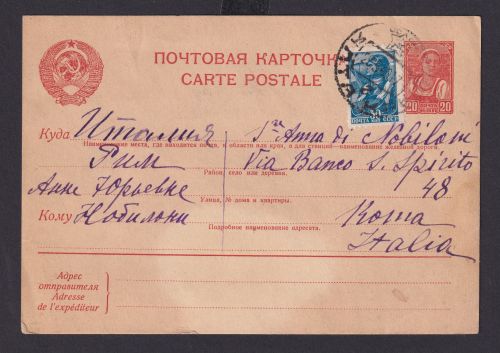 ПОЧТОВАЯ КАРТОЧКА
CARTE POSTALE
20 20
ПОЧТА СССР
Куда Италия
Sra Anna di Nobiloni
Наименование места, где находится почта, и области или края, а для станций—наименование железной дороги.
Рим
Via Banco S. Spirito
Район, село или деревня.
48
Анне Юрьевне
Улица, № дома и квартиры.
Кому Нобилони
Roma
Подробное наименование адресата.
Italia
Адрес
отправителя
Adresse
de l'expéditeur